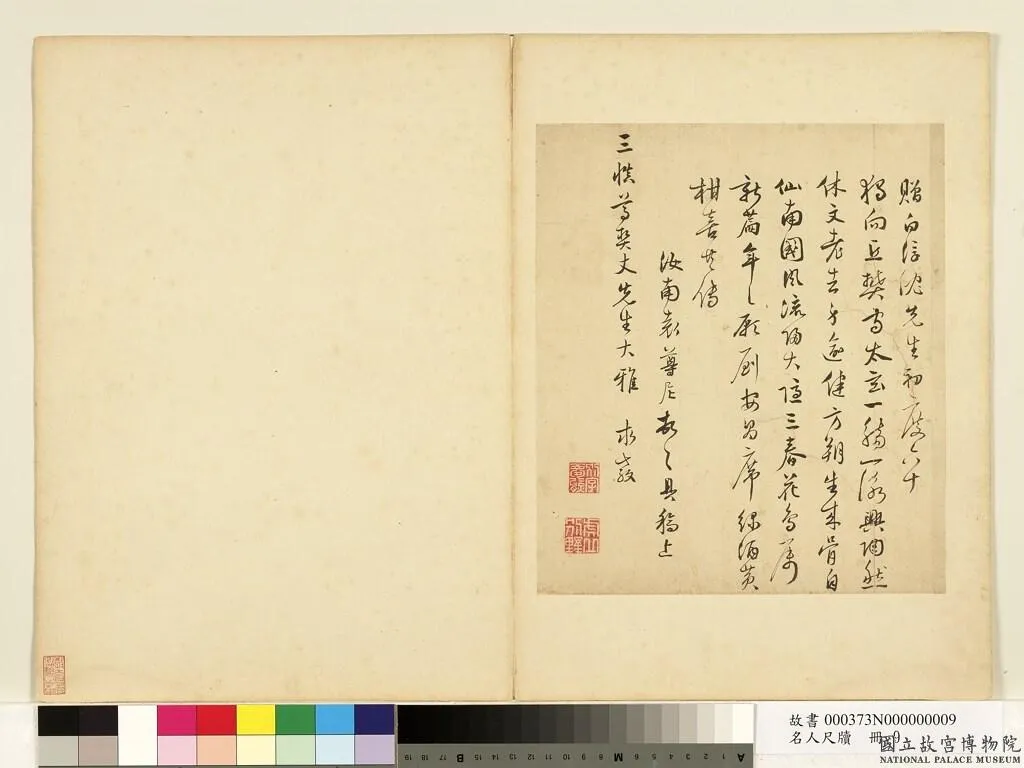 贈白浮沈先生初度八十
獨向丘樊守太玄一觴一詠興陶然
休文老去身逾健方朔生來骨自
仙南國風流歸大隱三春花鳥屬
新篇年年願到安昌席綠酒黃
柑喜共傳
汝南袁尊尼頓首具稿上
尊契丈先生大雅 求教
故書 000373N000000009
名人尺牘 冊 9
國立故宮博物院
NATIONAL PALACE MUSEUM